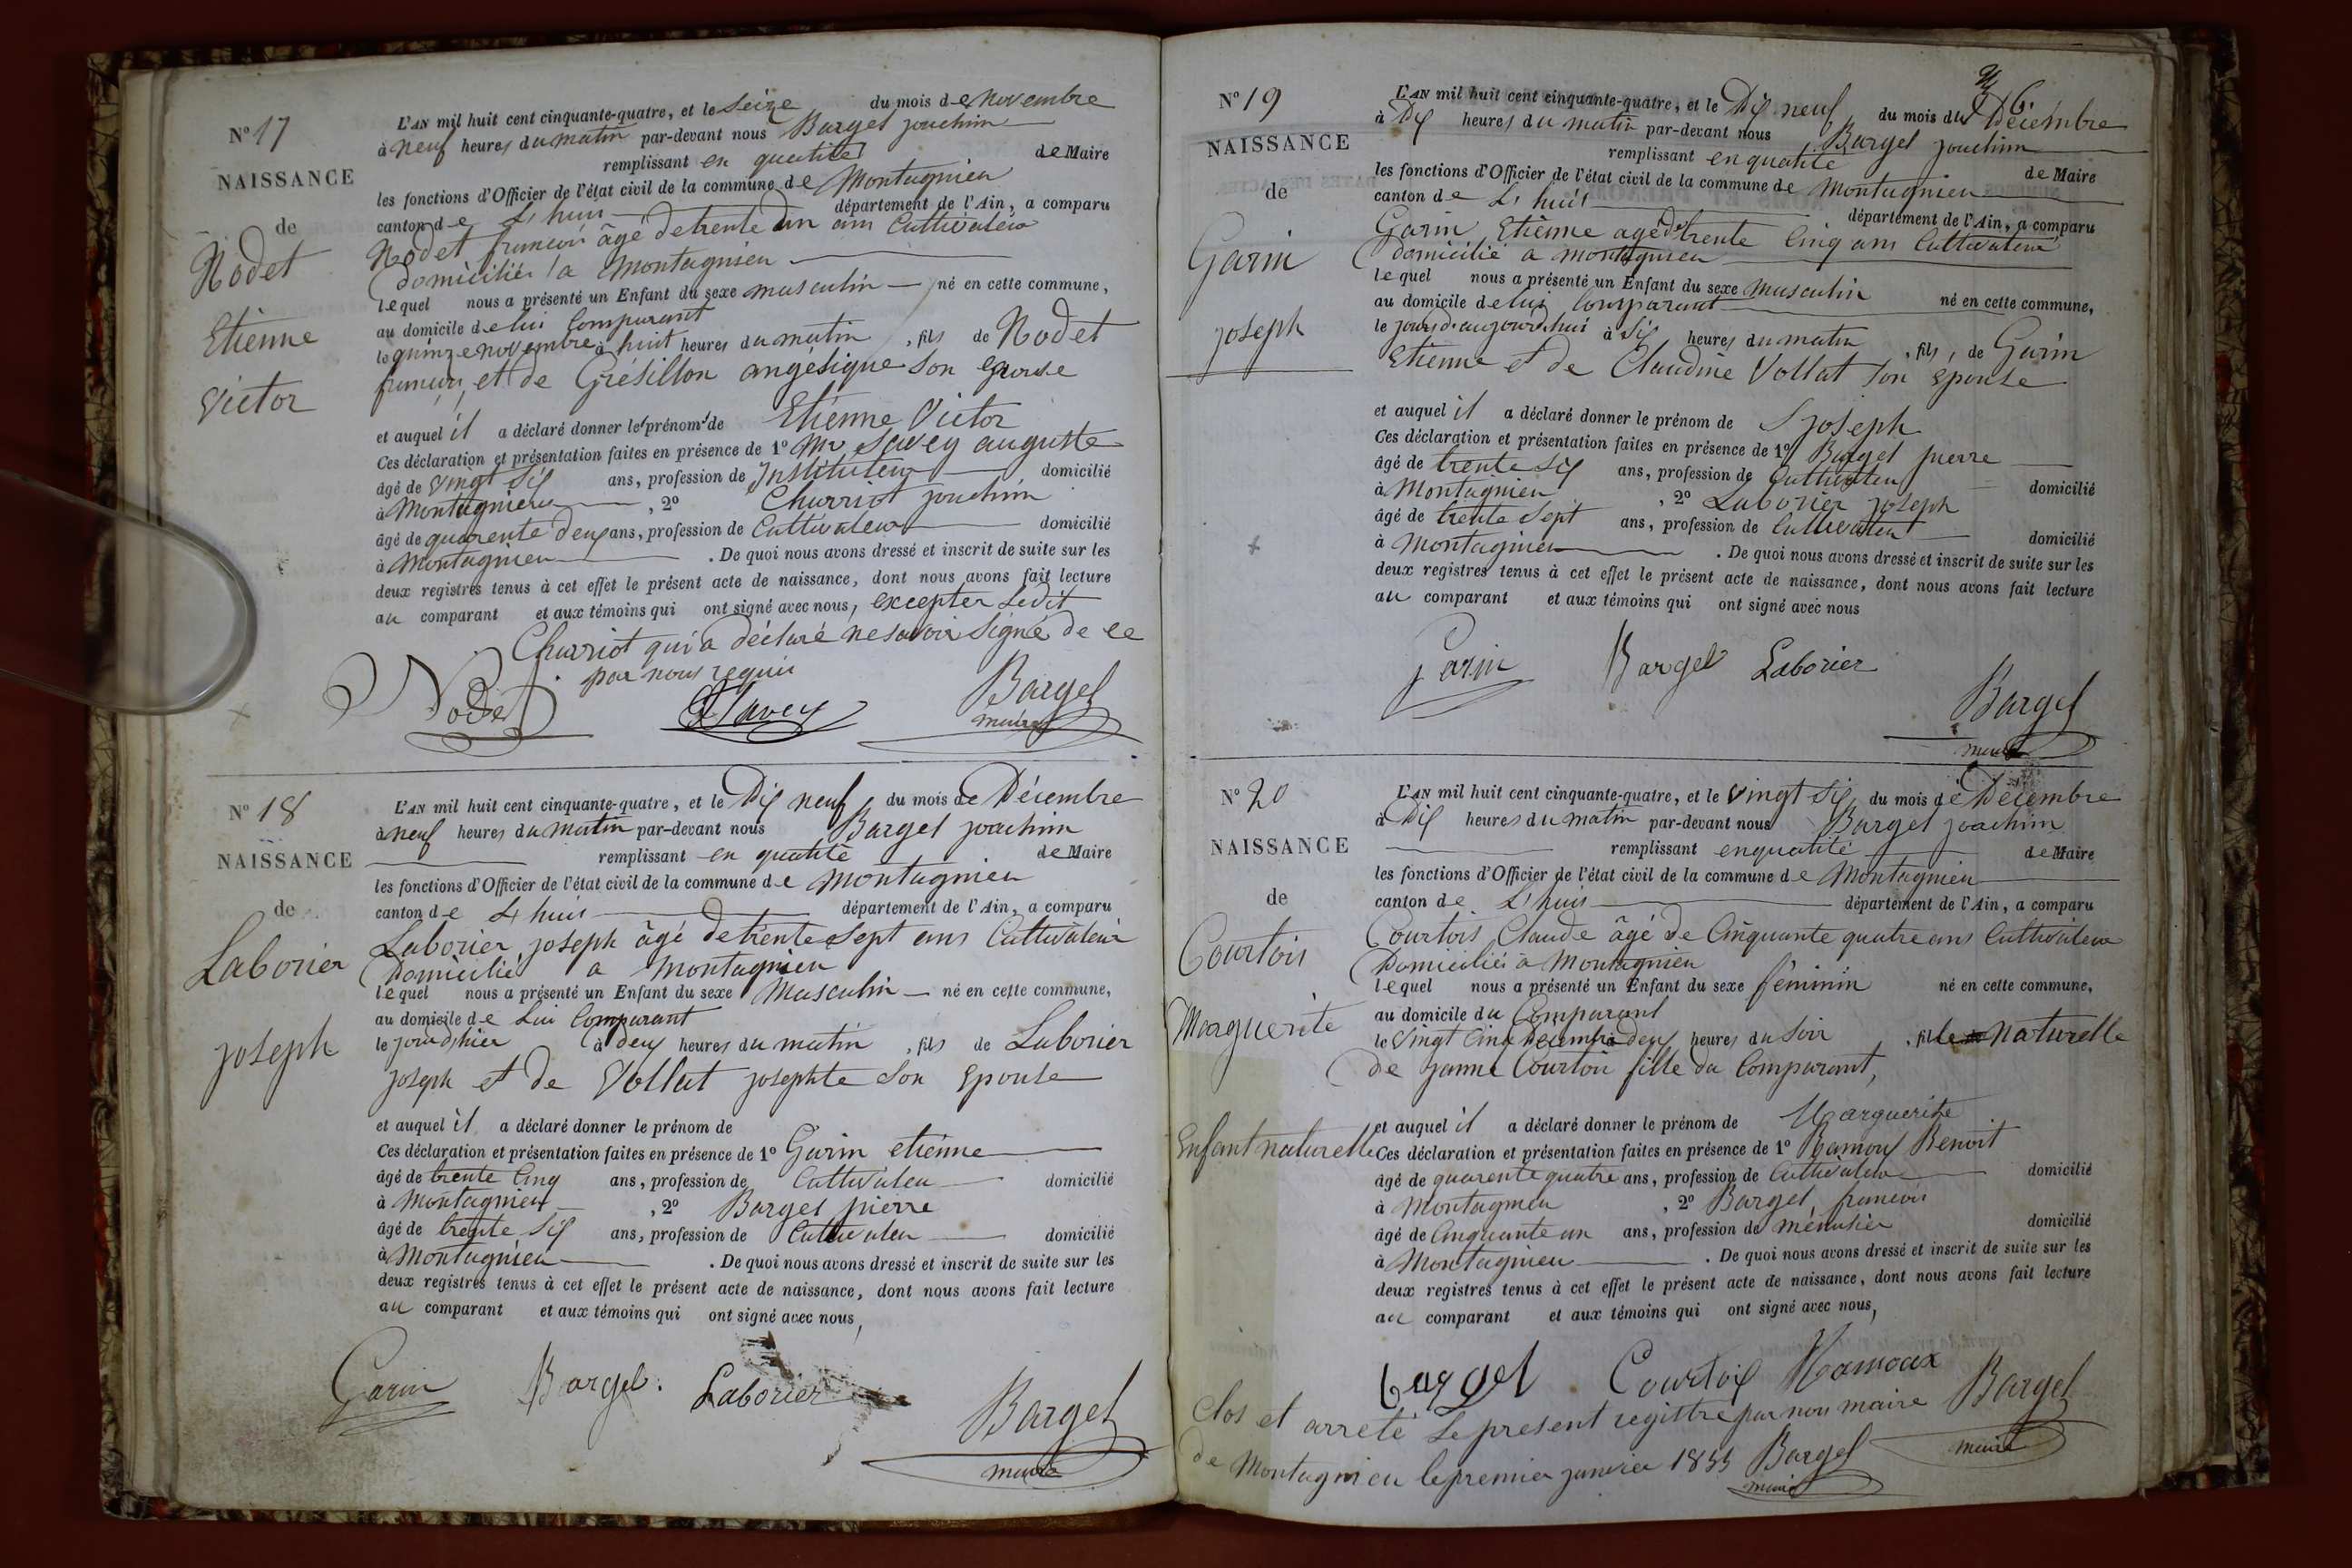 N° 17
NAISSANCE
de
Nodet
Etienne
Victor
L'AN mil huit cent cinquante-quatre, et le seize du mois de novembre
à neuf heures du matin par-devant nous Barget joachim
remplissant en qualité de Maire
les fonctions d'Officier de l'état civil de la commune de Montagnieu
canton de Lhuis département de l'Ain, a comparu
Nodet francois âgé de trente un ans Cultivateur
domicilié a Montagnieu
lequel nous a présenté un Enfant du sexe masculin né en cette commune,
au domicile de lui Comparant
le quinze novembre à huit heures du matin, fils de Nodet
francois, et de Grésillon angésique son epouse
et auquel il a déclaré donner les prénoms de Etienne Victor
Ces déclaration et présentation faites en présence de 1° Mr Savey auguste
âgé de vingt six ans, profession de Instituteur domicilié
à Montagnieu, 2° Charriot joachim
âgé de quarente deux ans, profession de Cultivateur domicilié
à Montagnieu. De quoi nous avons dressé et inscrit de suite sur les
deux registres tenus à cet effet le présent acte de naissance, dont nous avons fait lecture
au comparant et aux témoins qui ont signé avec nous, excepter Ledit
Charriot qui a déclaré ne savoir signé de ce
par nous requis
Nodet Savey Barget
maire
N° 18
NAISSANCE
de
Laborier
joseph
L'AN mil huit cent cinquante-quatre, et le Dix neuf du mois de Décembre
à neuf heures du matin par-devant nous Barget joachim
remplissant en qualité de Maire
les fonctions d'Officier de l'état civil de la commune de Montagnieu
canton de Lhuis département de l'Ain, a comparu
Laborier joseph âgé de trente sept ans Cultivateur
Domicilié a Montagnieu
lequel nous a présenté un Enfant du sexe Masculin né en cette commune,
au domicile de Lui Comparant
le jour d'hier à deux heures du matin, fils de Laborier
joseph et de Vollat josephte son epouse
et auquel il a déclaré donner le prénom de
Ces déclaration et présentation faites en présence de 1° Garin etienne
âgé de trente cinq ans, profession de Cultivateu domicilié
à Montagnieu, 2° Barget pierre
âgé de trente six ans, profession de Cultivateu domicilié
à Montagnieu. De quoi nous avons dressé et inscrit de suite sur les
deux registres tenus à cet effet le présent acte de naissance, dont nous avons fait lecture
au comparant et aux témoins qui ont signé avec nous,
Garin Barget Laborier Barget
maire
N° 19
NAISSANCE
de
Garin
joseph
L'AN mil huit cent cinquante-quatre, et le Dix neuf du mois de Décembre
à Dix heures du matin par-devant nous Barget joachim
remplissant en qualité de Maire
les fonctions d'Officier de l'état civil de la commune de Montagnieu
canton de Lhuis département de l'Ain, a comparu
Garin Etienne agé de trente Cinq ans Cultivateur
Domicilié a montagnieu
lequel nous a présenté un Enfant du sexe Masculin né en cette commune,
au domicile de lui Comparant
le jours d'aujourd'hui à six heures du matin, fils, de Garin
Etienne et de Claudine Vollat son epouse
et auquel il a déclaré donner le prénom de joseph
Ces déclaration et présentation faites en présence de 1° Barget pierre
âgé de trente six ans, profession de Cultivateu
à Montagnieu, 2° Laborier joseph domicilié
âgé de trente sept ans, profession de Cultivateur domicilié
à Montagnieu. De quoi nous avons dressé et inscrit de suite sur les
deux registres tenus à cet effet le présent acte de naissance, dont nous avons fait lecture
au comparant et aux témoins qui ont signé avec nous
Garin Barget Laborier
Barget
maire
N° 20
NAISSANCE
de
Courtois
Marguerite
Enfant naturelle
L'AN mil huit cent cinquante-quatre, et le vingt six du mois de Décembre
à Dix heures du matin par-devant nous Barget joachim
remplissant en qualité de Maire
les fonctions d'Officier de l'état civil de la commune de Montagnieu
canton de Lhuis département de l'Ain, a comparu
Courtois Claude âgé de Cinquante quatre ans Cultivateur
Domicilié à Montagnieu
lequel nous a présenté un Enfant du sexe féminin né en cette commune,
au domicile du Comparant
le vingt cinq Décembre à deux heures du soir, fille naturelle
de janne Courtois fille du Comparant,
et auquel il a déclaré donner le prénom de Marguerite
Ces déclaration et présentation faites en présence de 1° Ramoux Benoit
âgé de quarente quatre ans, profession de Cultivateur domicilié
à Montagnieu, 2° Barget francois
âgé de Cinquante un ans, profession de ménusier domicilié
à Montagnieu. De quoi nous avons dressé et inscrit de suite sur les
deux registres tenus à cet effet le présent acte de naissance, dont nous avons fait lecture
au comparant et aux témoins qui ont signé avec nous,
barget Courtois Ramoux Barget
maire
Clos et arreté Le present registre par nous maire
de Montagnieu le premier janvier 1855 Barget
maire